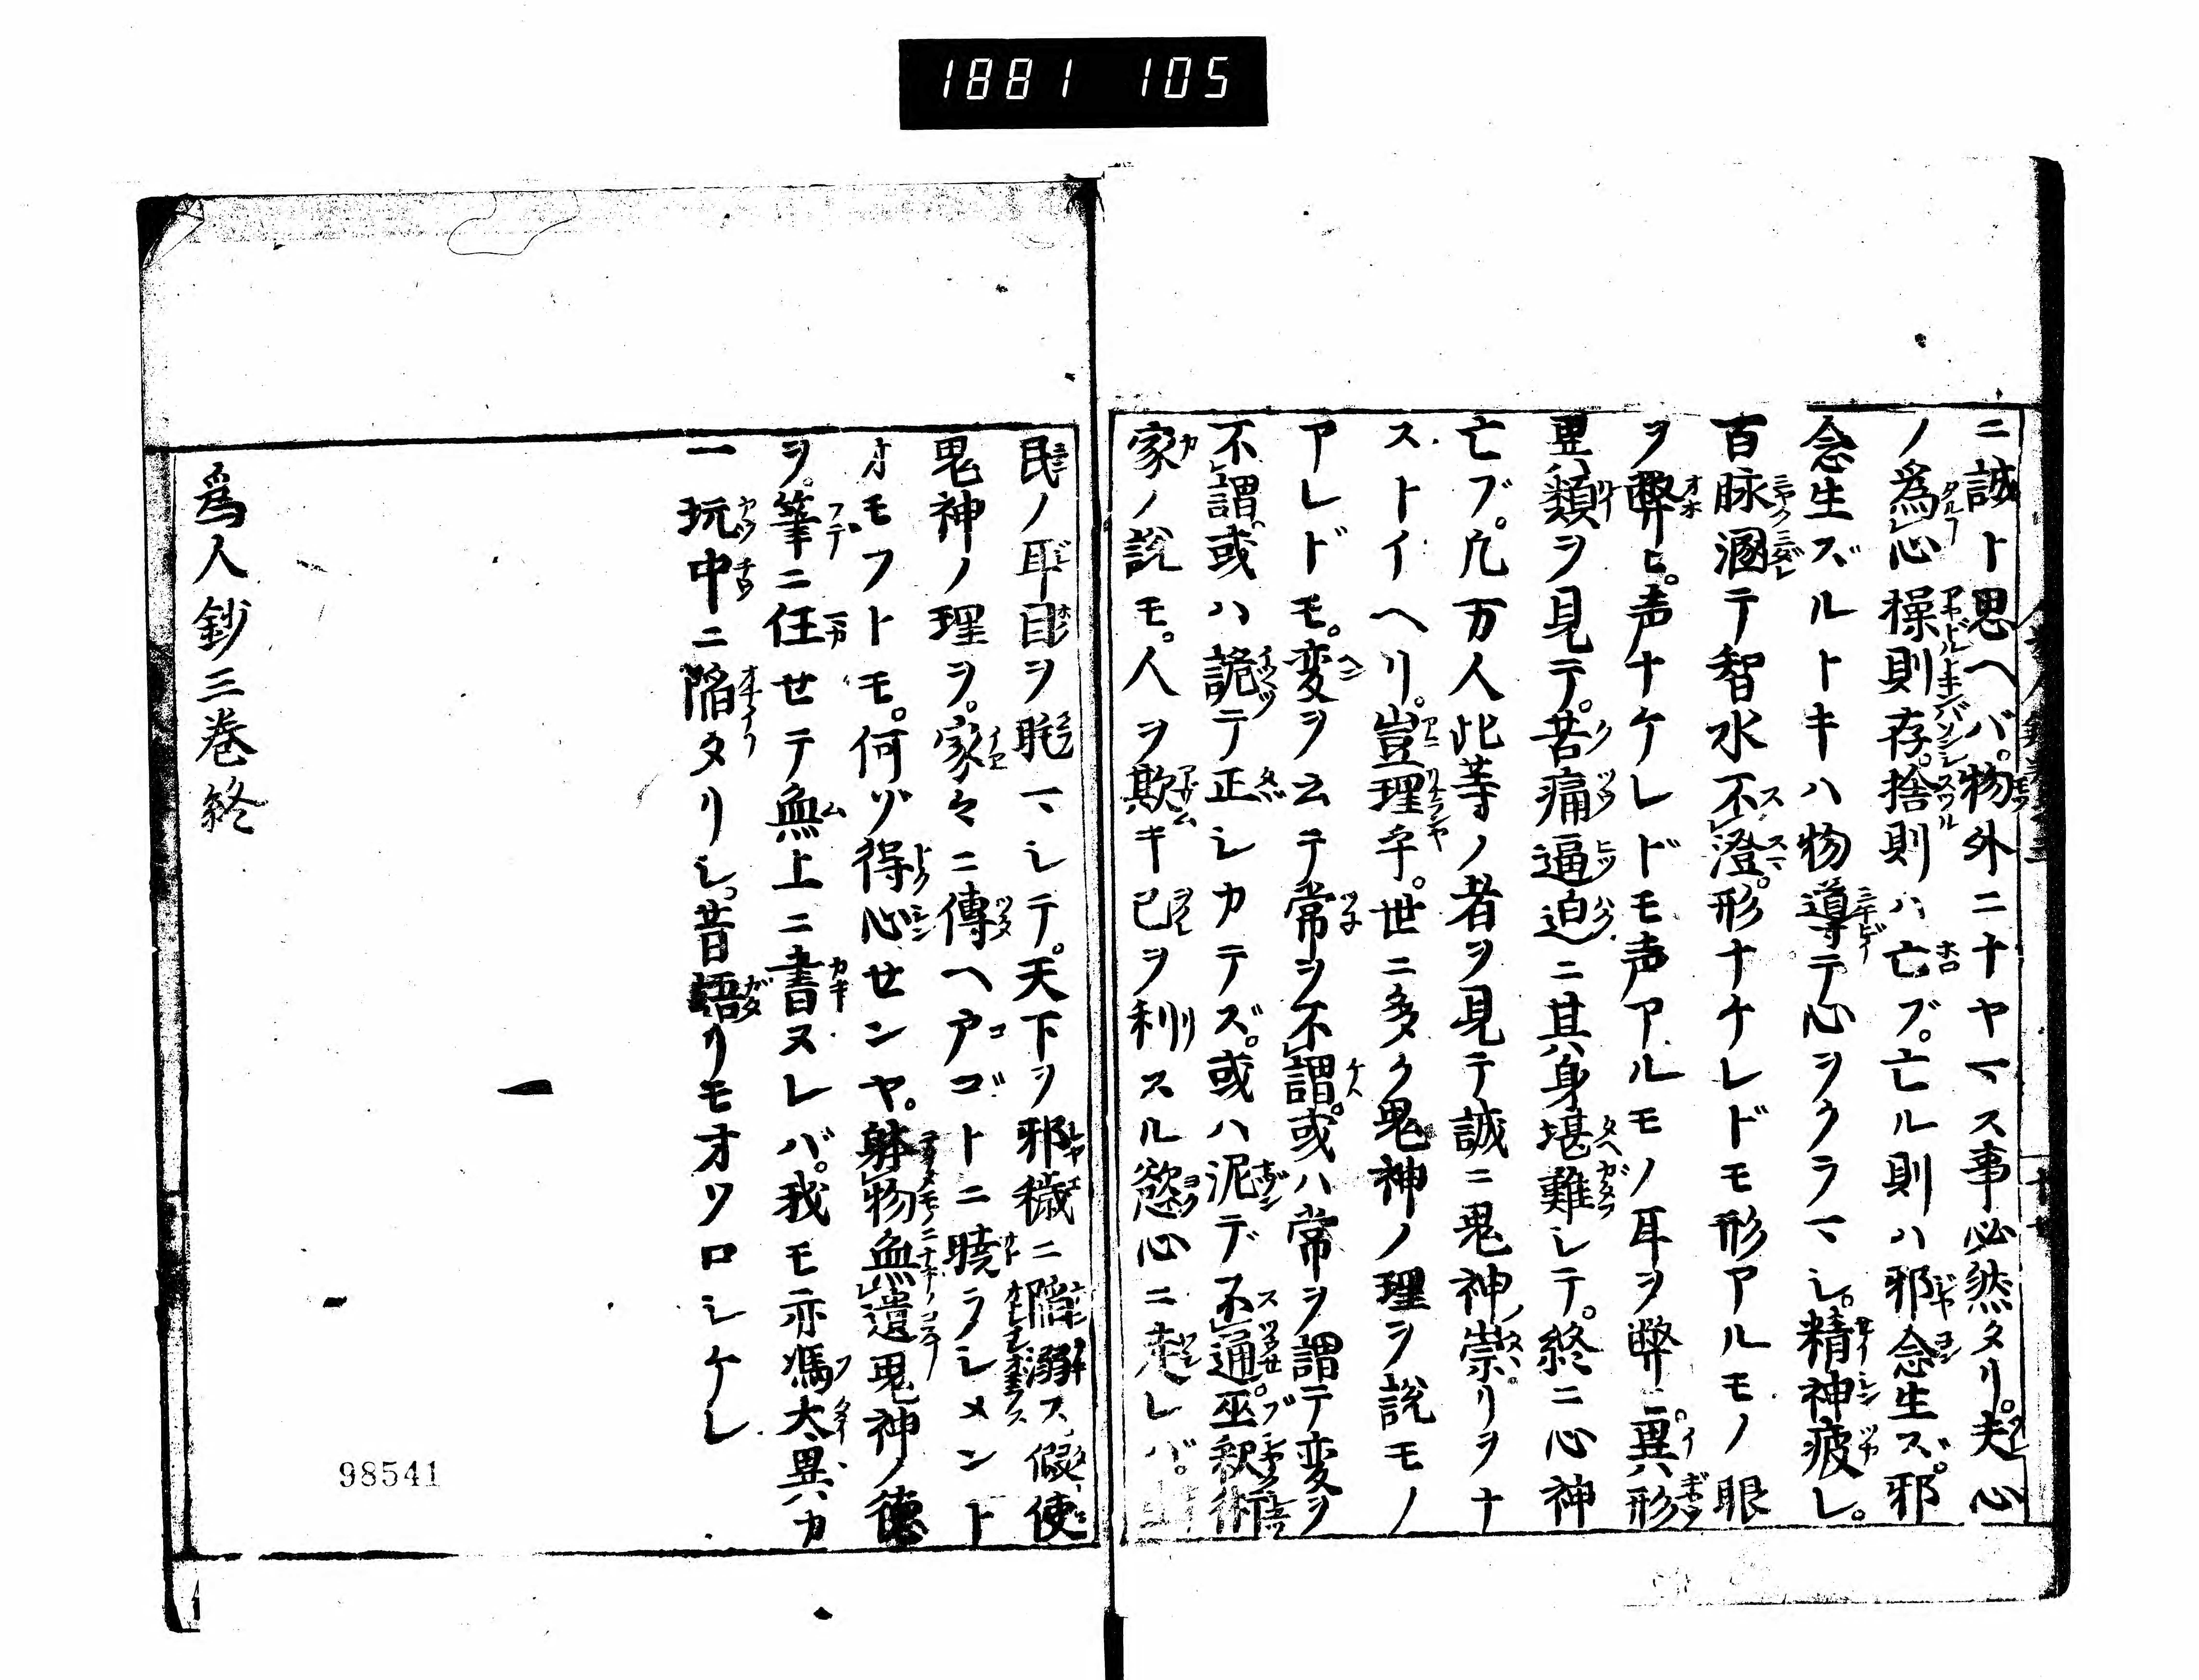 1881 105
ニ誠ト思ヘバ。物外ニナヤマス事必然タリ。夫心
ノ為心操則存。捨則ハ亡ブ。亡ル則ハ邪念生ズ。邪
念生ズルトキハ物導テ心ヲクラマシ。精神疲レ。
百脉溷テ智水不澄。形ナケレドモ形アルモノヽ眼
ヲ弊ヒ。声ナケレドモ声アルモノノ耳ヲ弊ニ。異形
異類ヲ見テ。苦痛逼迫ニ其身堪難シテ。終ニ心神
亡ブ。凢万人此等ノ者ヲ見テ誠ニ鬼神ノ祟リヲナ
ストイヘリ。豈理乎。世ニ多ク鬼神ノ理ヲ説モノ
アレドモ。変ヲ云テ常ヲ不謂。或ハ常ヲ謂テ変ヲ
不謂。或ハ詭テ正シカテズ。或ハ泥デ不通。巫釈術
家ノ説モ。人ヲ欺キ己ヲ利スル慾心ニ走レバ。
民ノ耳目ヲ眊マシテ。天下ヲ邪穢ニ陥溺ス。假使
鬼神ノ理ヲ。家々ニ傳ヘ戸ゴトニ暁ラシメント
オモフトモ。何ゾ得心せンヤ。躰物無遺鬼神ノ德
ヲ。筆ニ任せテ無上ニ書ヌレバ。我モ亦馮大異ガ
一玩中ニ陥タリシ。昔語リモオソロシケレ
為人鈔三巻終
98541